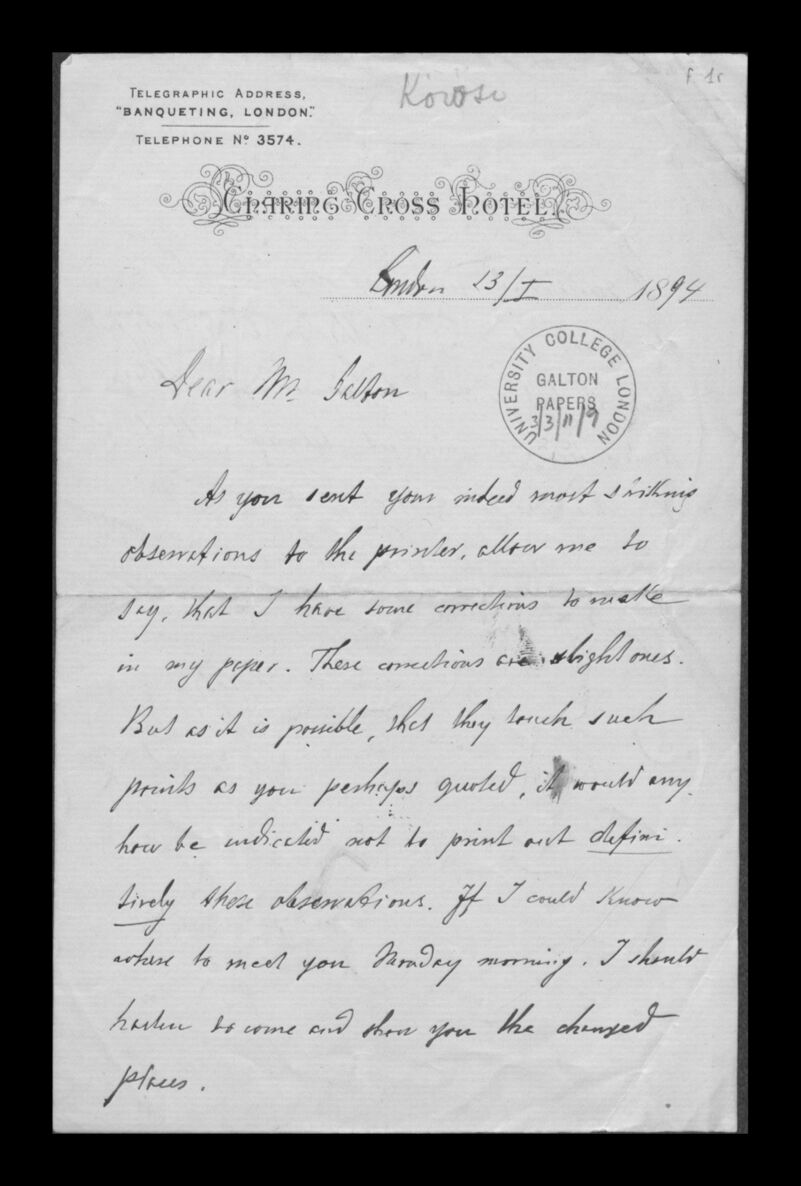 f 1r
Körösi
TELEGRAPHIC ADDRESS,
"BANQUETING, LONDON."
TELEPHONE No 3574.
CHARING CROSS HOTEL.
London 13/I 1894
UNIVERSITY COLLEGE LONDON
GALTON
PAPERS
3/3/11/9
Dear Mr Galton
As you sent your indeed most striking
observations to the printer, allow me to
say, that I have some corrections to make
in my paper. These corrections are slight ones.
But as it is possible, that they touch such
points as you perhaps quoted, it would any-
how be indicated not to print out defini-
tively these observations. If I could know
where to meet you Monday morning. I should
hasten to come and show you the changed
places.